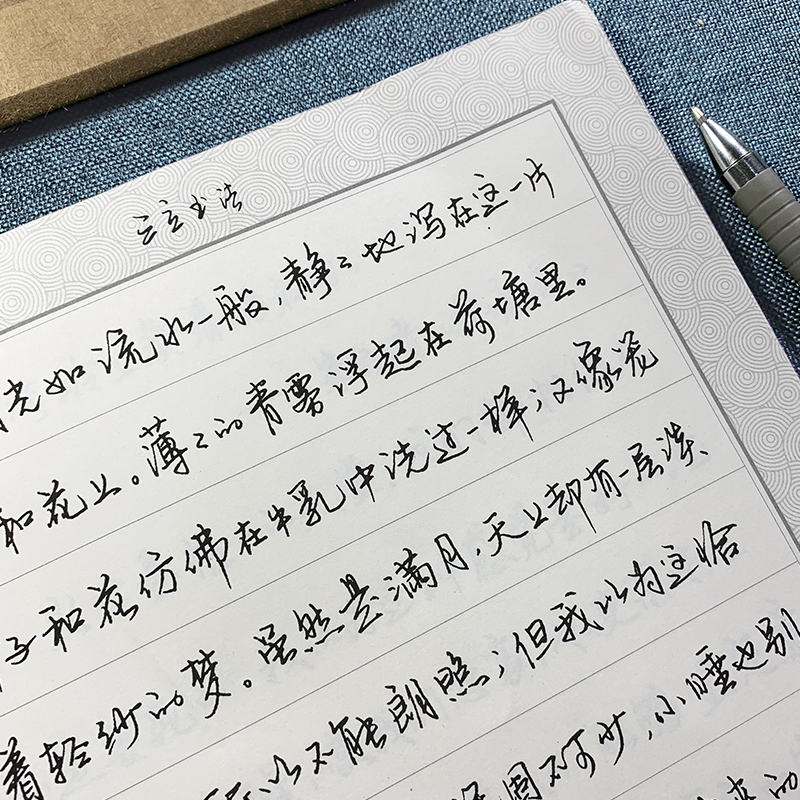 书法
光如流水一般，静々地泻在这一片
和花上。薄々的青雾浮起在荷塘里。
子和花仿佛在牛乳中洗过一样；又像笼
着轻纱的梦。虽然是满月，天上却有一层淡々
所以不能朗照；但我以为这恰
眠固不可少，小睡也别
来的